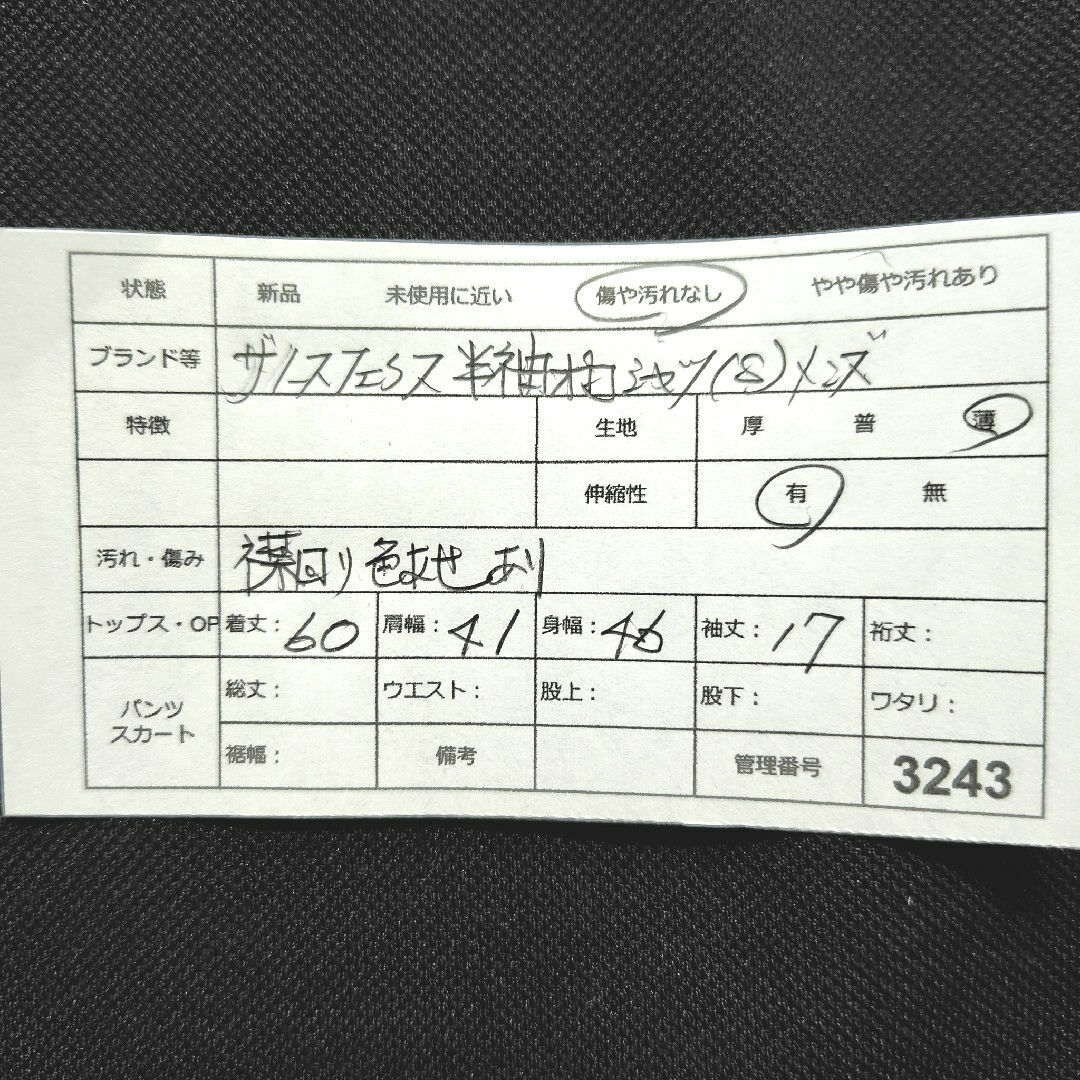 状態 新品 未使用に近い 傷や汚れなし やや傷や汚れあり
ブランド等 ザノースフェイス 半袖ポロシャツ(S)メンズ
特徴 生地 厚 普 薄
伸縮性 有 無
汚れ・傷み 襟回り色あせあり
トップス・OP 着丈:60 肩幅:41 身幅:46 袖丈:17 裄丈:
パンツ スカート 総丈: ウエスト: 股上: 股下: ワタリ:
裾幅: 備考 管理番号 3243